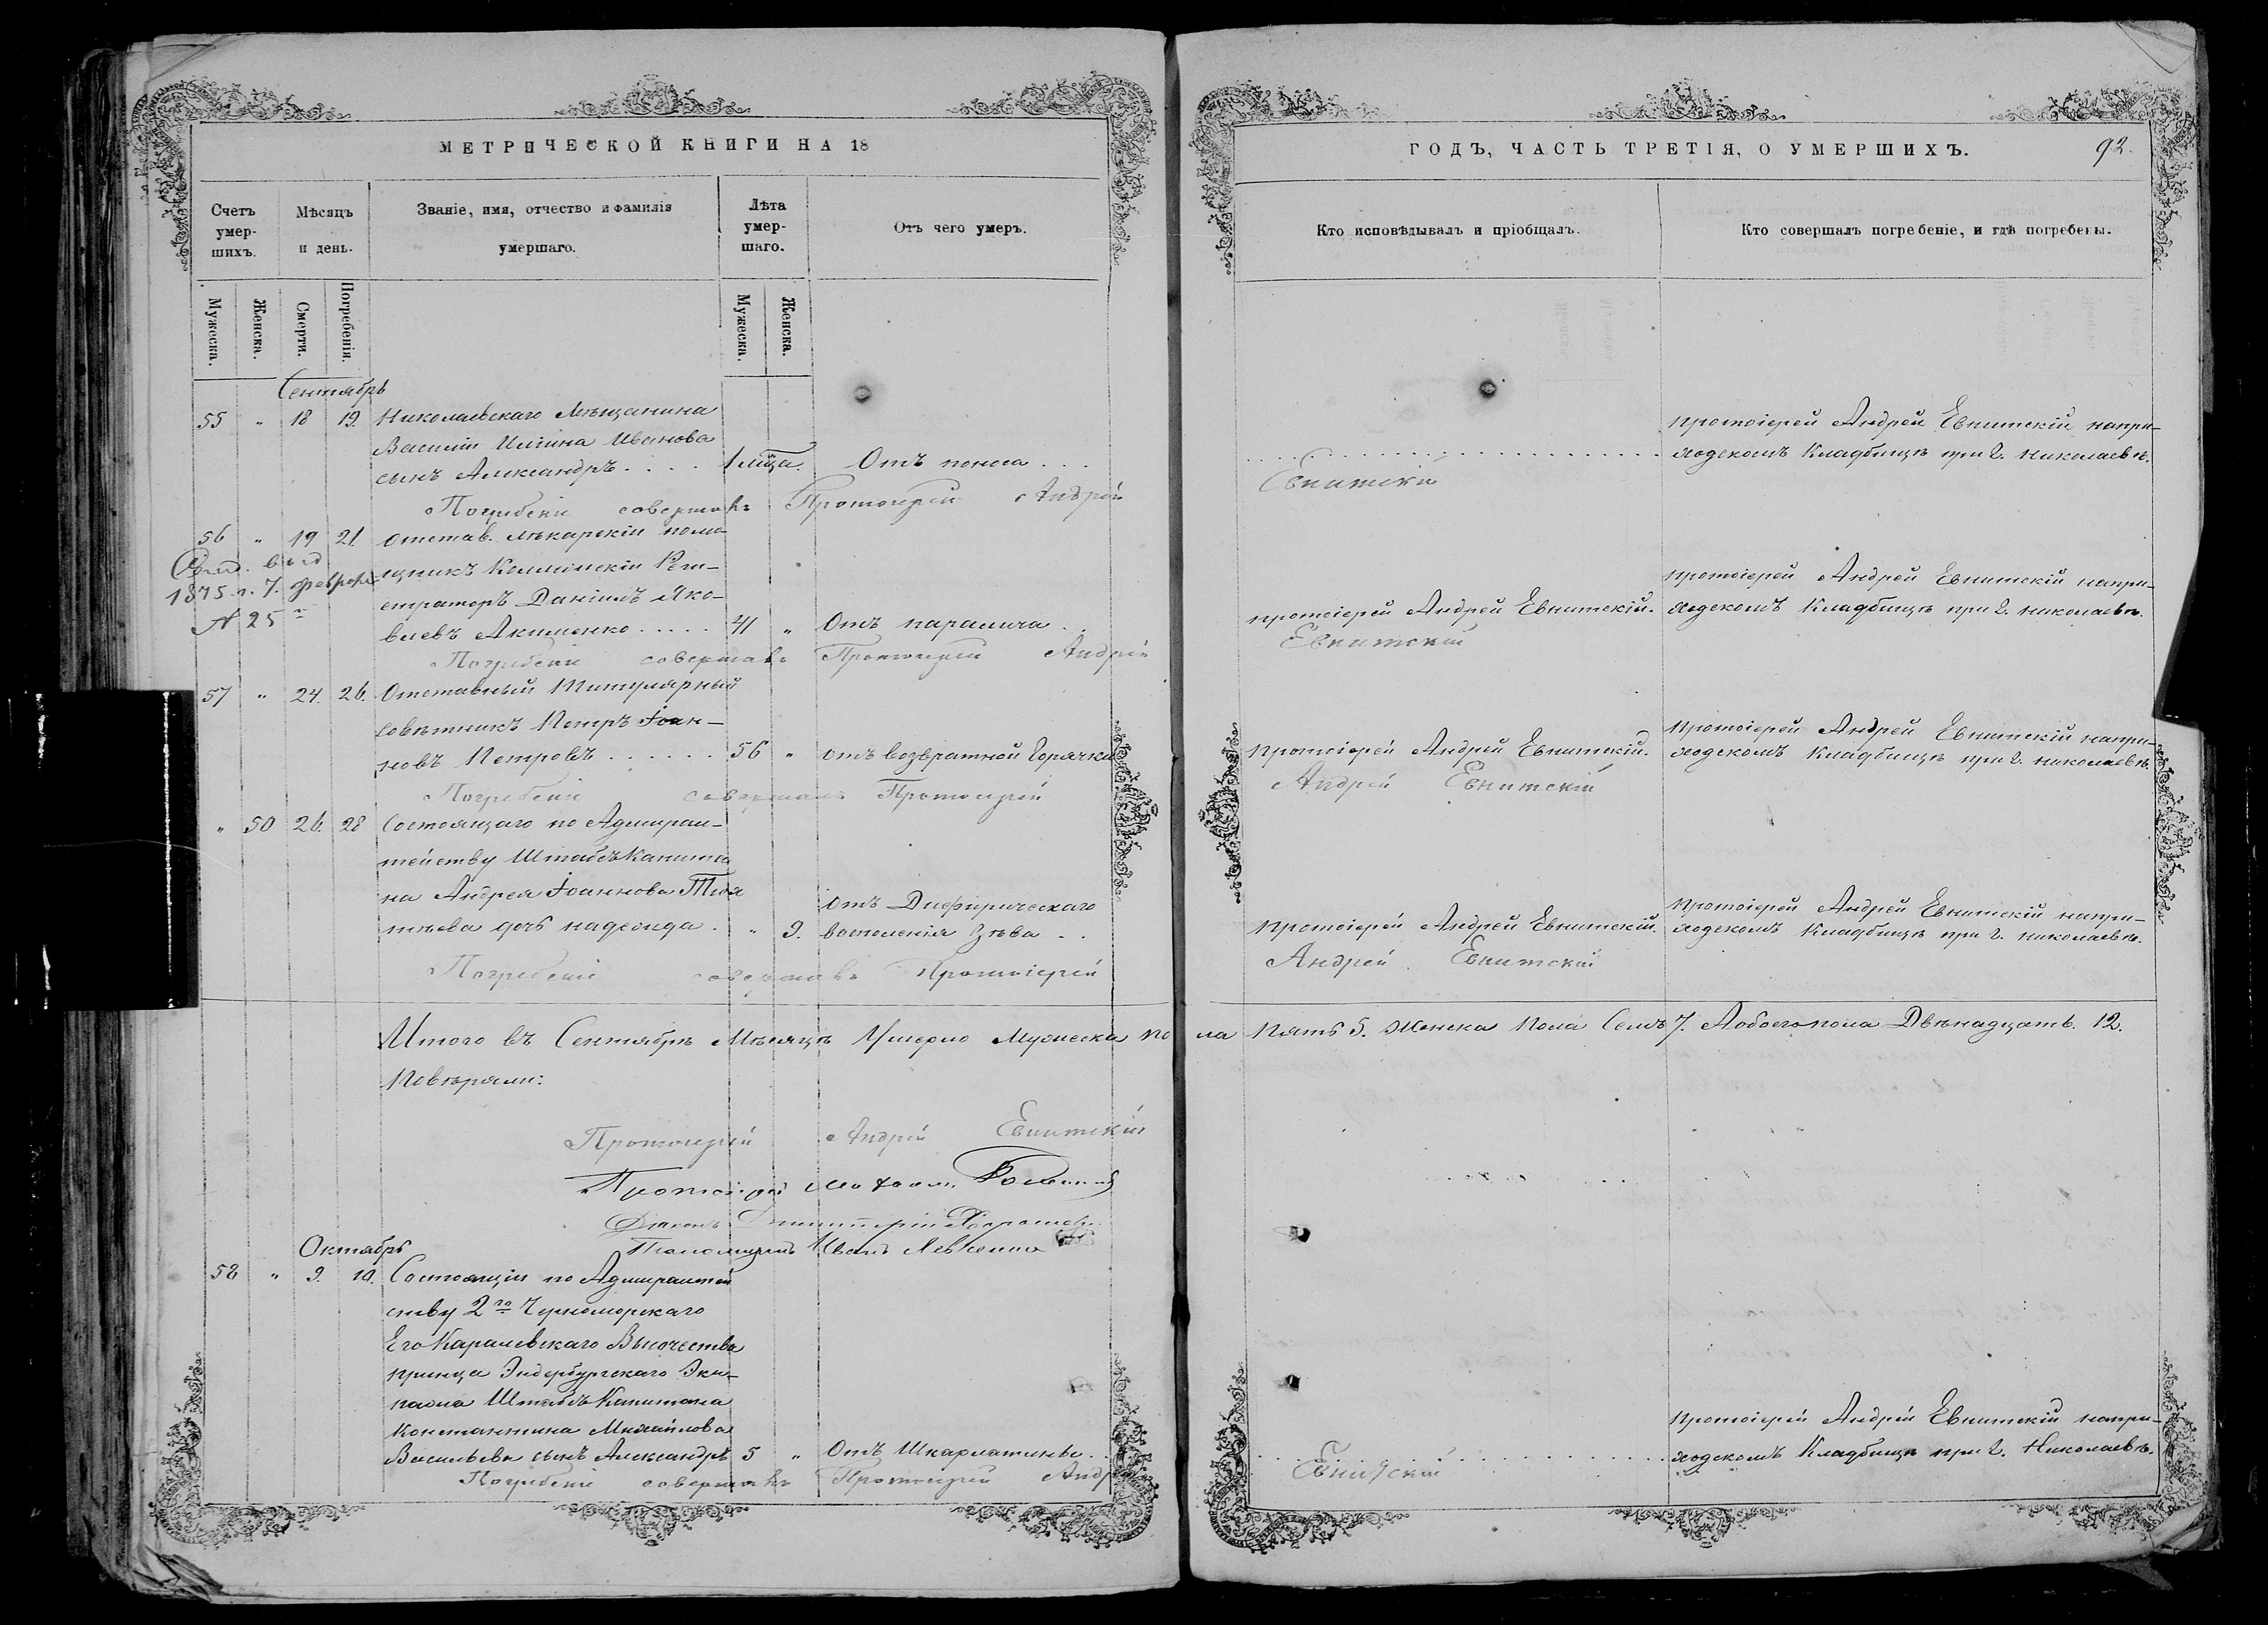 МЕТРИЧЕСКОЙ КНИГИ НА 18
Счетъ умер-шихъ.
Мѣсяцъ и день.
Званіе, имя, отчество и фамилія умершаго.
Лѣта умер-шаго.
Отъ чего умеръ.
Мужеска.
Женска.
Смерти.
Погребенія.
Мужеска.
Женска.
Сентябрь
55 " 18 19. Николаевскаго Мѣщанина
Василія Ильина Иванова
сынъ Александръ . . . . 1 мца. Отъ поноса . . .
Погребеніе совершалъ Протоіерей Андрей
56 " 19 21. Отстав. лѣкарскій помо-
щникъ Коллежскій Реги-
1875 г. 7. февраля
страторъ Даніилъ Яко-
№ 25
влевъ Акименко . . . . . 41 " Отъ паралича . .
Погребеніе совершалъ Протоіерей Андрей
57 " 24. 26. Отставный Титулярный
Совѣтникъ Петръ Іоан-
новъ Петровъ . . . . . . 56 " отъ возвратной Горячки
Погребеніе совершалъ Протоіерей
" 50 26. 28 Состоящаго по Адмирал-
тейству Штабсъ Капита
на Андрея Іоаннова
дочь надежда . " 9. отъ Дифирическаго
восполенія Зѣва . .
Погребеніе совершалъ Протоіерей
Итого въ Сентябрѣ Мѣсяцѣ Умерло Мужеска по
Повѣряли:
Протоіерей Андрей Евнитскій
Протоіерей
Діаконъ Димитрій
Пономарь Иванъ Левченко
Октябрь
58 " 9. 10. Состоящій по Адмиралтей
ству 2го Черноморскаго
Его Каралевскаго Высочества
принца Эндербургскаго Эки-
пажа Штабсъ Капитана
Константина Михайлова
Васильева сынъ Александръ 5 " Отъ Шкарлатины . .
Погребеніе совершалъ Протоіерей Андрей
ГОДЪ, ЧАСТЬ ТРЕТІЯ, О УМЕРШИХЪ.
92.
Кто исповѣдывалъ и пріобщалъ.
Кто совершалъ погребеніе, и гдѣ погребены.
протоіерей Андрей Евнитскій напри-
ходскомъ Кладбищѣ при г. Николаевѣ.
Евнитскій
протоіерей Андрей Евнитскій напри-
протоіерей Андрей Евнитскій. ходскомъ Кладбищѣ при г. николаевѣ.
Евнитскій
протоіерей Андрей Евнитскій напри-
протоіерей Андрей Евнитскій. ходскомъ Кладбищѣ при г. николаевѣ.
Андрей Евнитскій
протоіерей Андрей Евнитскій напри-
протоіерей Андрей Евнитскій. ходскомъ Кладбищѣ при г. николаевѣ.
Андрей Евнитскій
ла Пять 5. Женска Пола Семь 7. Аобоегопола Двѣнадцать. 12.
протоіерей Андрей Евнитскій напри-
ходскомъ Кладбищѣ при г. Николаевѣ.
Евнитскій